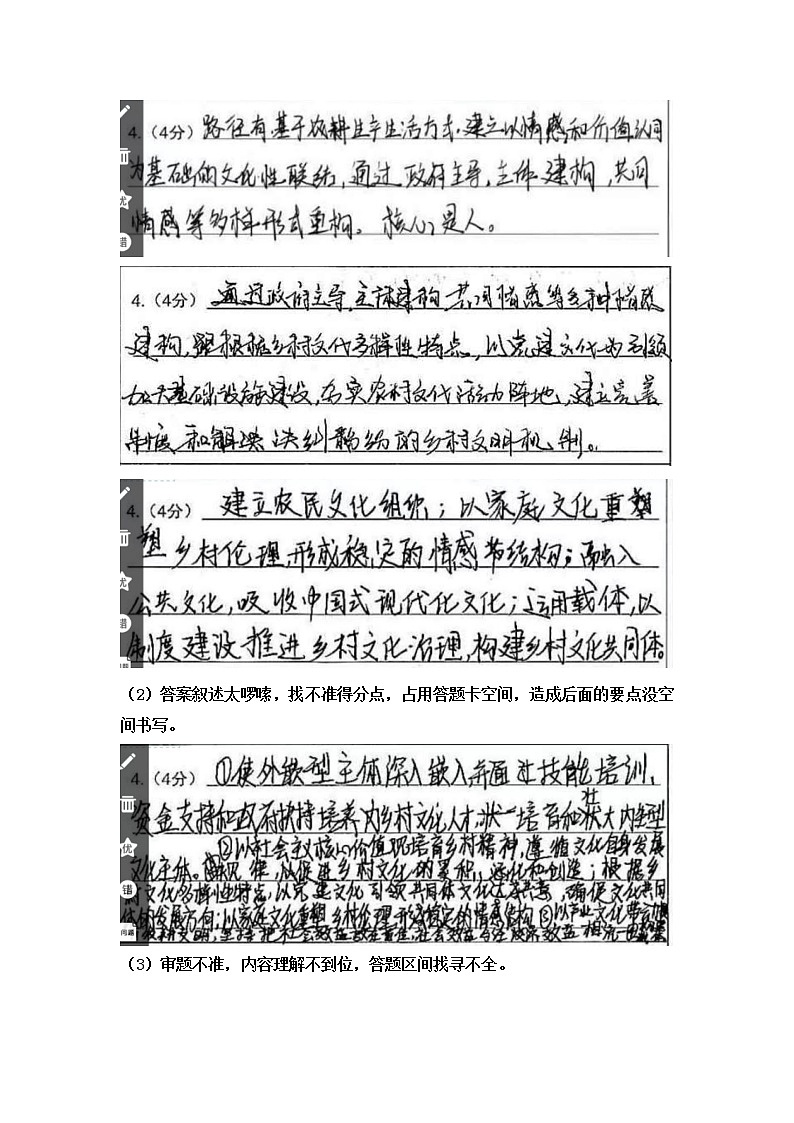 4.（4分）路径有基于农耕生产生活方式，建立以情感和价值认同
为基础的文化性联结，通过政府主导，主体建构，共同
情感等多样形式重构。核心是人。
4.（4分）通过政府主导，主体建构，共同情感等多种情感
建构，要根据乡村文化多样性特点，以党建文化为引领
加大基础设施建设，夯实农村文化活动阵地，建立完善
制度和解决决纠纷的乡村文明机制。
4.（4分）建立农民文化组织；以家庭文化重塑
塑乡村伦理，形成稳定的情感结构；融入
公共文化，吸收中国式现代化文化；运用载体，以
制度建设推进乡村文化治理，构建乡村文化共同体。
（2）答案叙述太啰嗦，找不准得分点，占用答题卡空间，造成后面的要点没空
间书写。
4.（4分）①使外嵌型主体深入嵌入并通过技能培训，
资金支持和政府扶持培养内乡村文化人才，培育和壮大内生型
②以社会主义核心价值观培育乡村精神，遵循文化自身发展
文化主体。规律，以促进乡村文化的累积，进化和创造；根据乡
村文化多样性特点，以党建文化引领共同体文化，确保文化共同
体的发展方向；以家庭文化重塑乡村伦理形成稳定的情感结构③以产业文化带动
（3）审题不准，内容理解不到位，答题区间找寻不全。